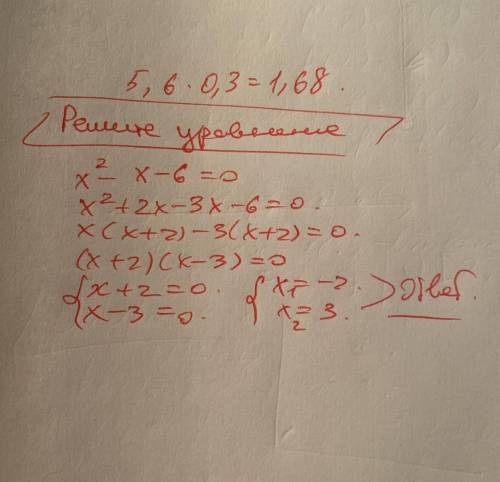 5,6 · 0,3 = 1,68.
Решите уравнение
x² - x - 6 = 0
x² + 2x - 3x - 6 = 0.
x(x+2) - 3(x+2) = 0.
(x+2)(x-3) = 0
{x+2 = 0. {x₁ = -2. > ответ.
{x-3 = 0. {x₂ = 3.